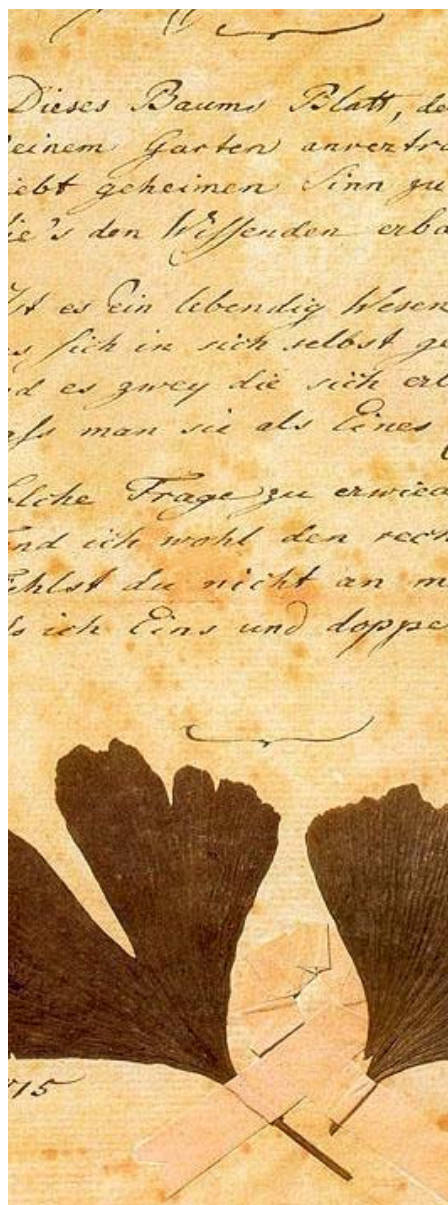 Dieses Baums Blatt, de
einem Garten anvertra
iebt geheimen Sinn zu
ie's den Wissenden erba
Ist es Ein lebendig Wesen
as sich in sich selbst ge
nd es zwey die sich erl
aſs man sie als Eines
olche Frage zu erwied
and ich wohl den rech
ühlst du nicht an m
ls ich Eins und doppe
15